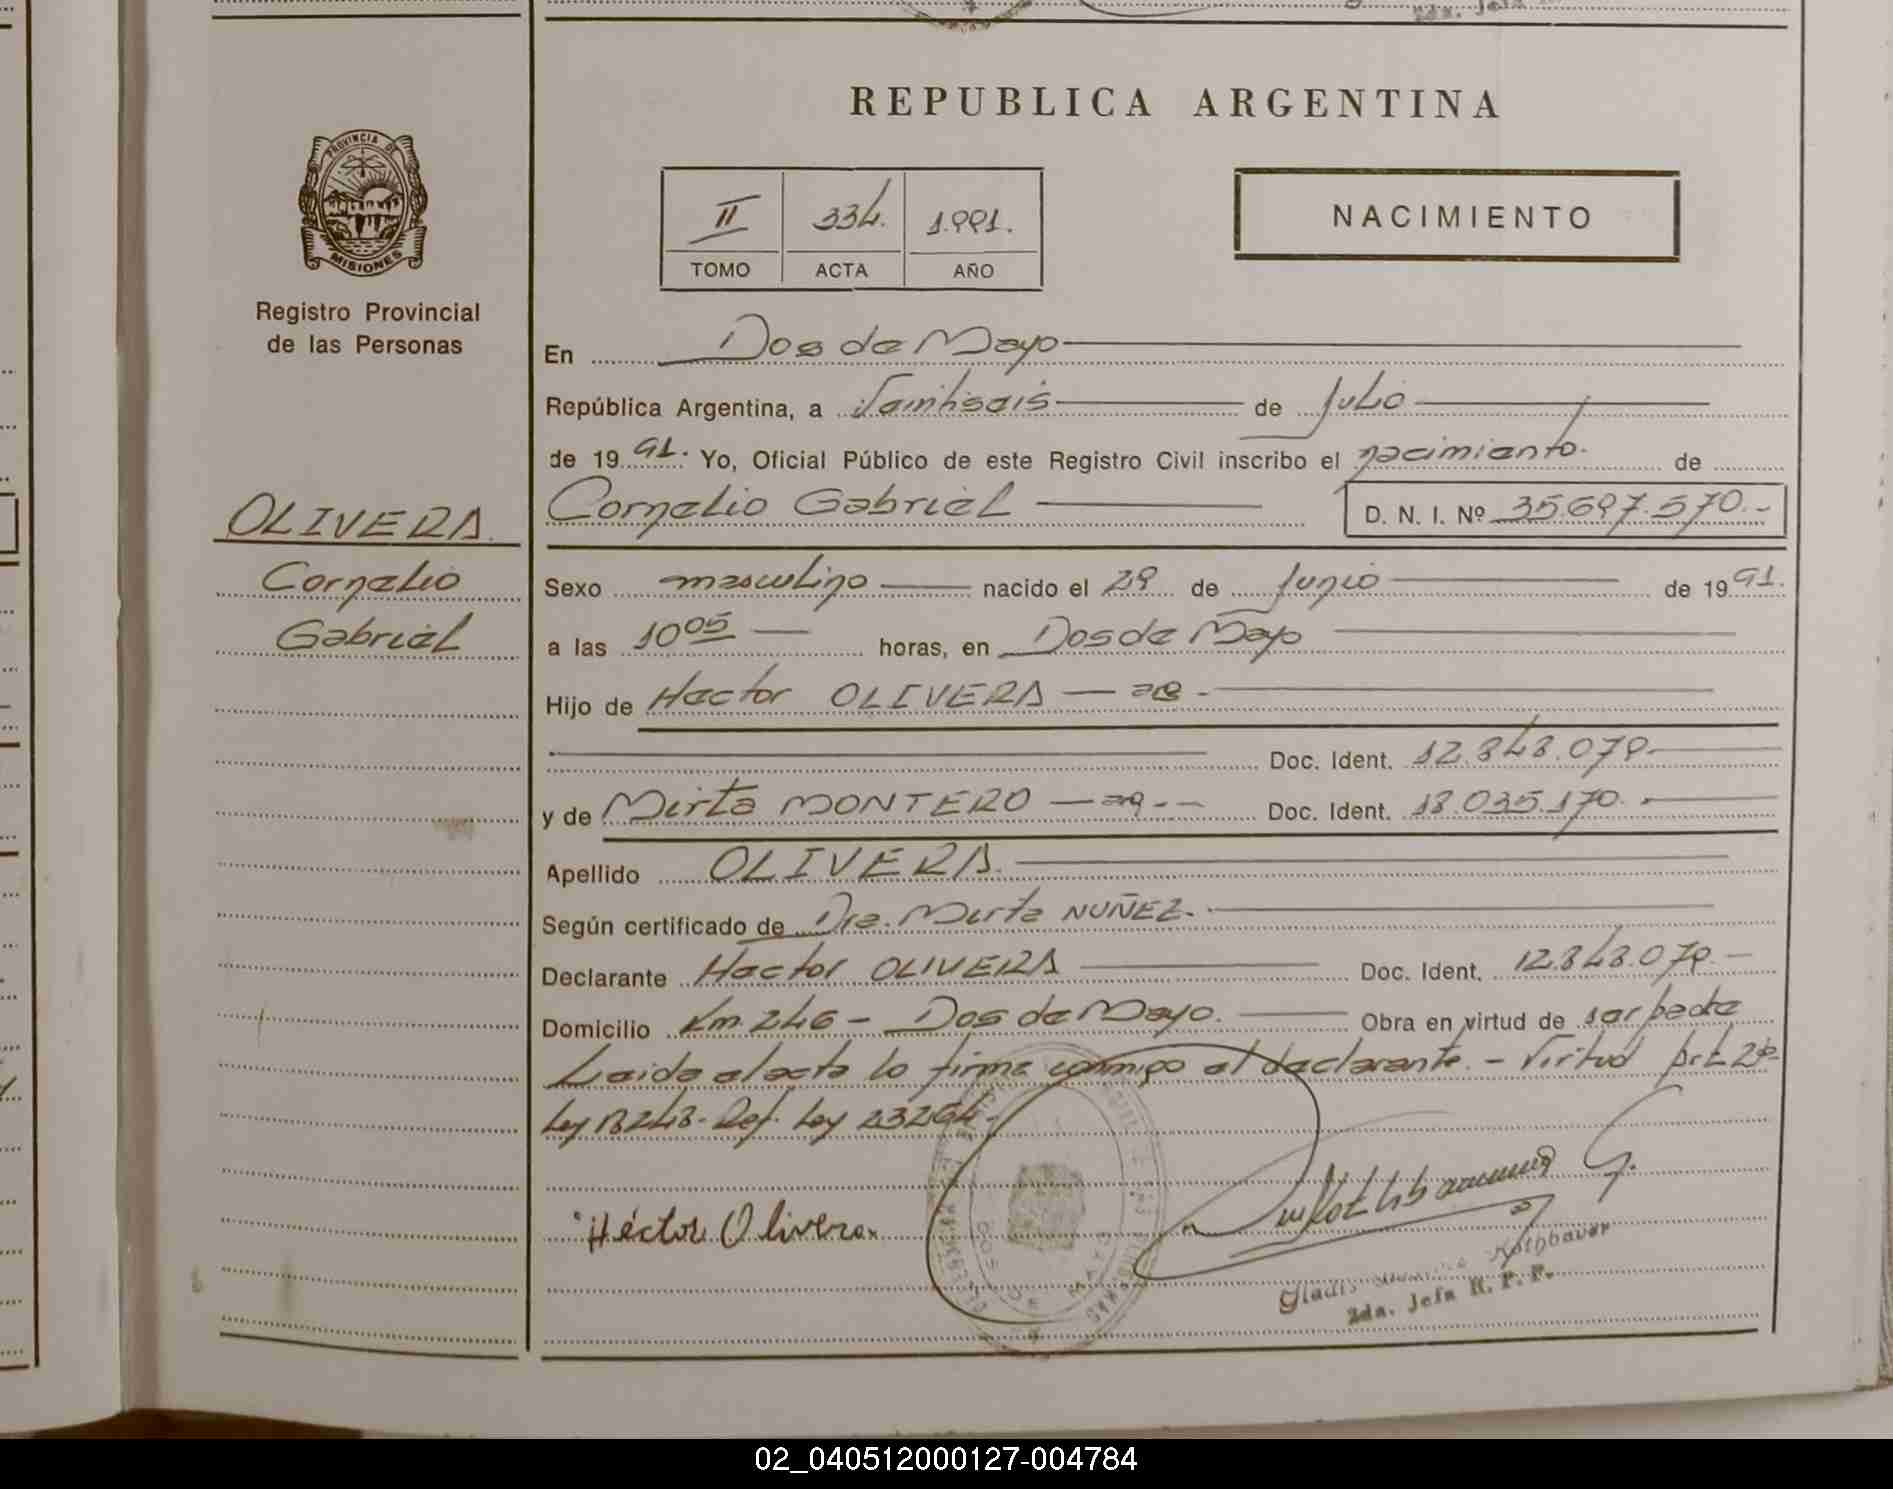 REPUBLICA ARGENTINA
PROVINCIA DE
MISIONES
Registro Provincial
de las Personas
II 334. 1.991.
TOMO ACTA AÑO
NACIMIENTO
En Dos de Mayo
República Argentina, a Veintiseis de Julio
de 19 91. Yo, Oficial Público de este Registro Civil inscribo el nacimiento de
Cornelio Gabriel D. N. I. Nº 35.697.570.-
OLIVERA
Cornelio
Gabriel
Sexo masculino nacido el 29 de Junio de 19 91.
a las 10 05 horas, en Dos de Mayo
Hijo de Hector OLIVERA — ae -
Doc. Ident. 12.848.079-
y de Mirta MONTERO — ae - - Doc. Ident. 18.035.170.
Apellido OLIVERA.
Según certificado de Dra. Mirta NUÑEZ.-
Declarante Hector OLIVERA Doc. Ident. 12.848.079.-
Domicilio Km. 246 - Dos de Mayo. Obra en virtud de
Leida el acta lo firma conmigo el declarante. - Virtud Art 29-
Ley 18248. Ley 23264-
Héctor Olivera
DOS DE MAYO
Gladis Rothbauer
2da. Jefa R. P. P.
02_040512000127-004784